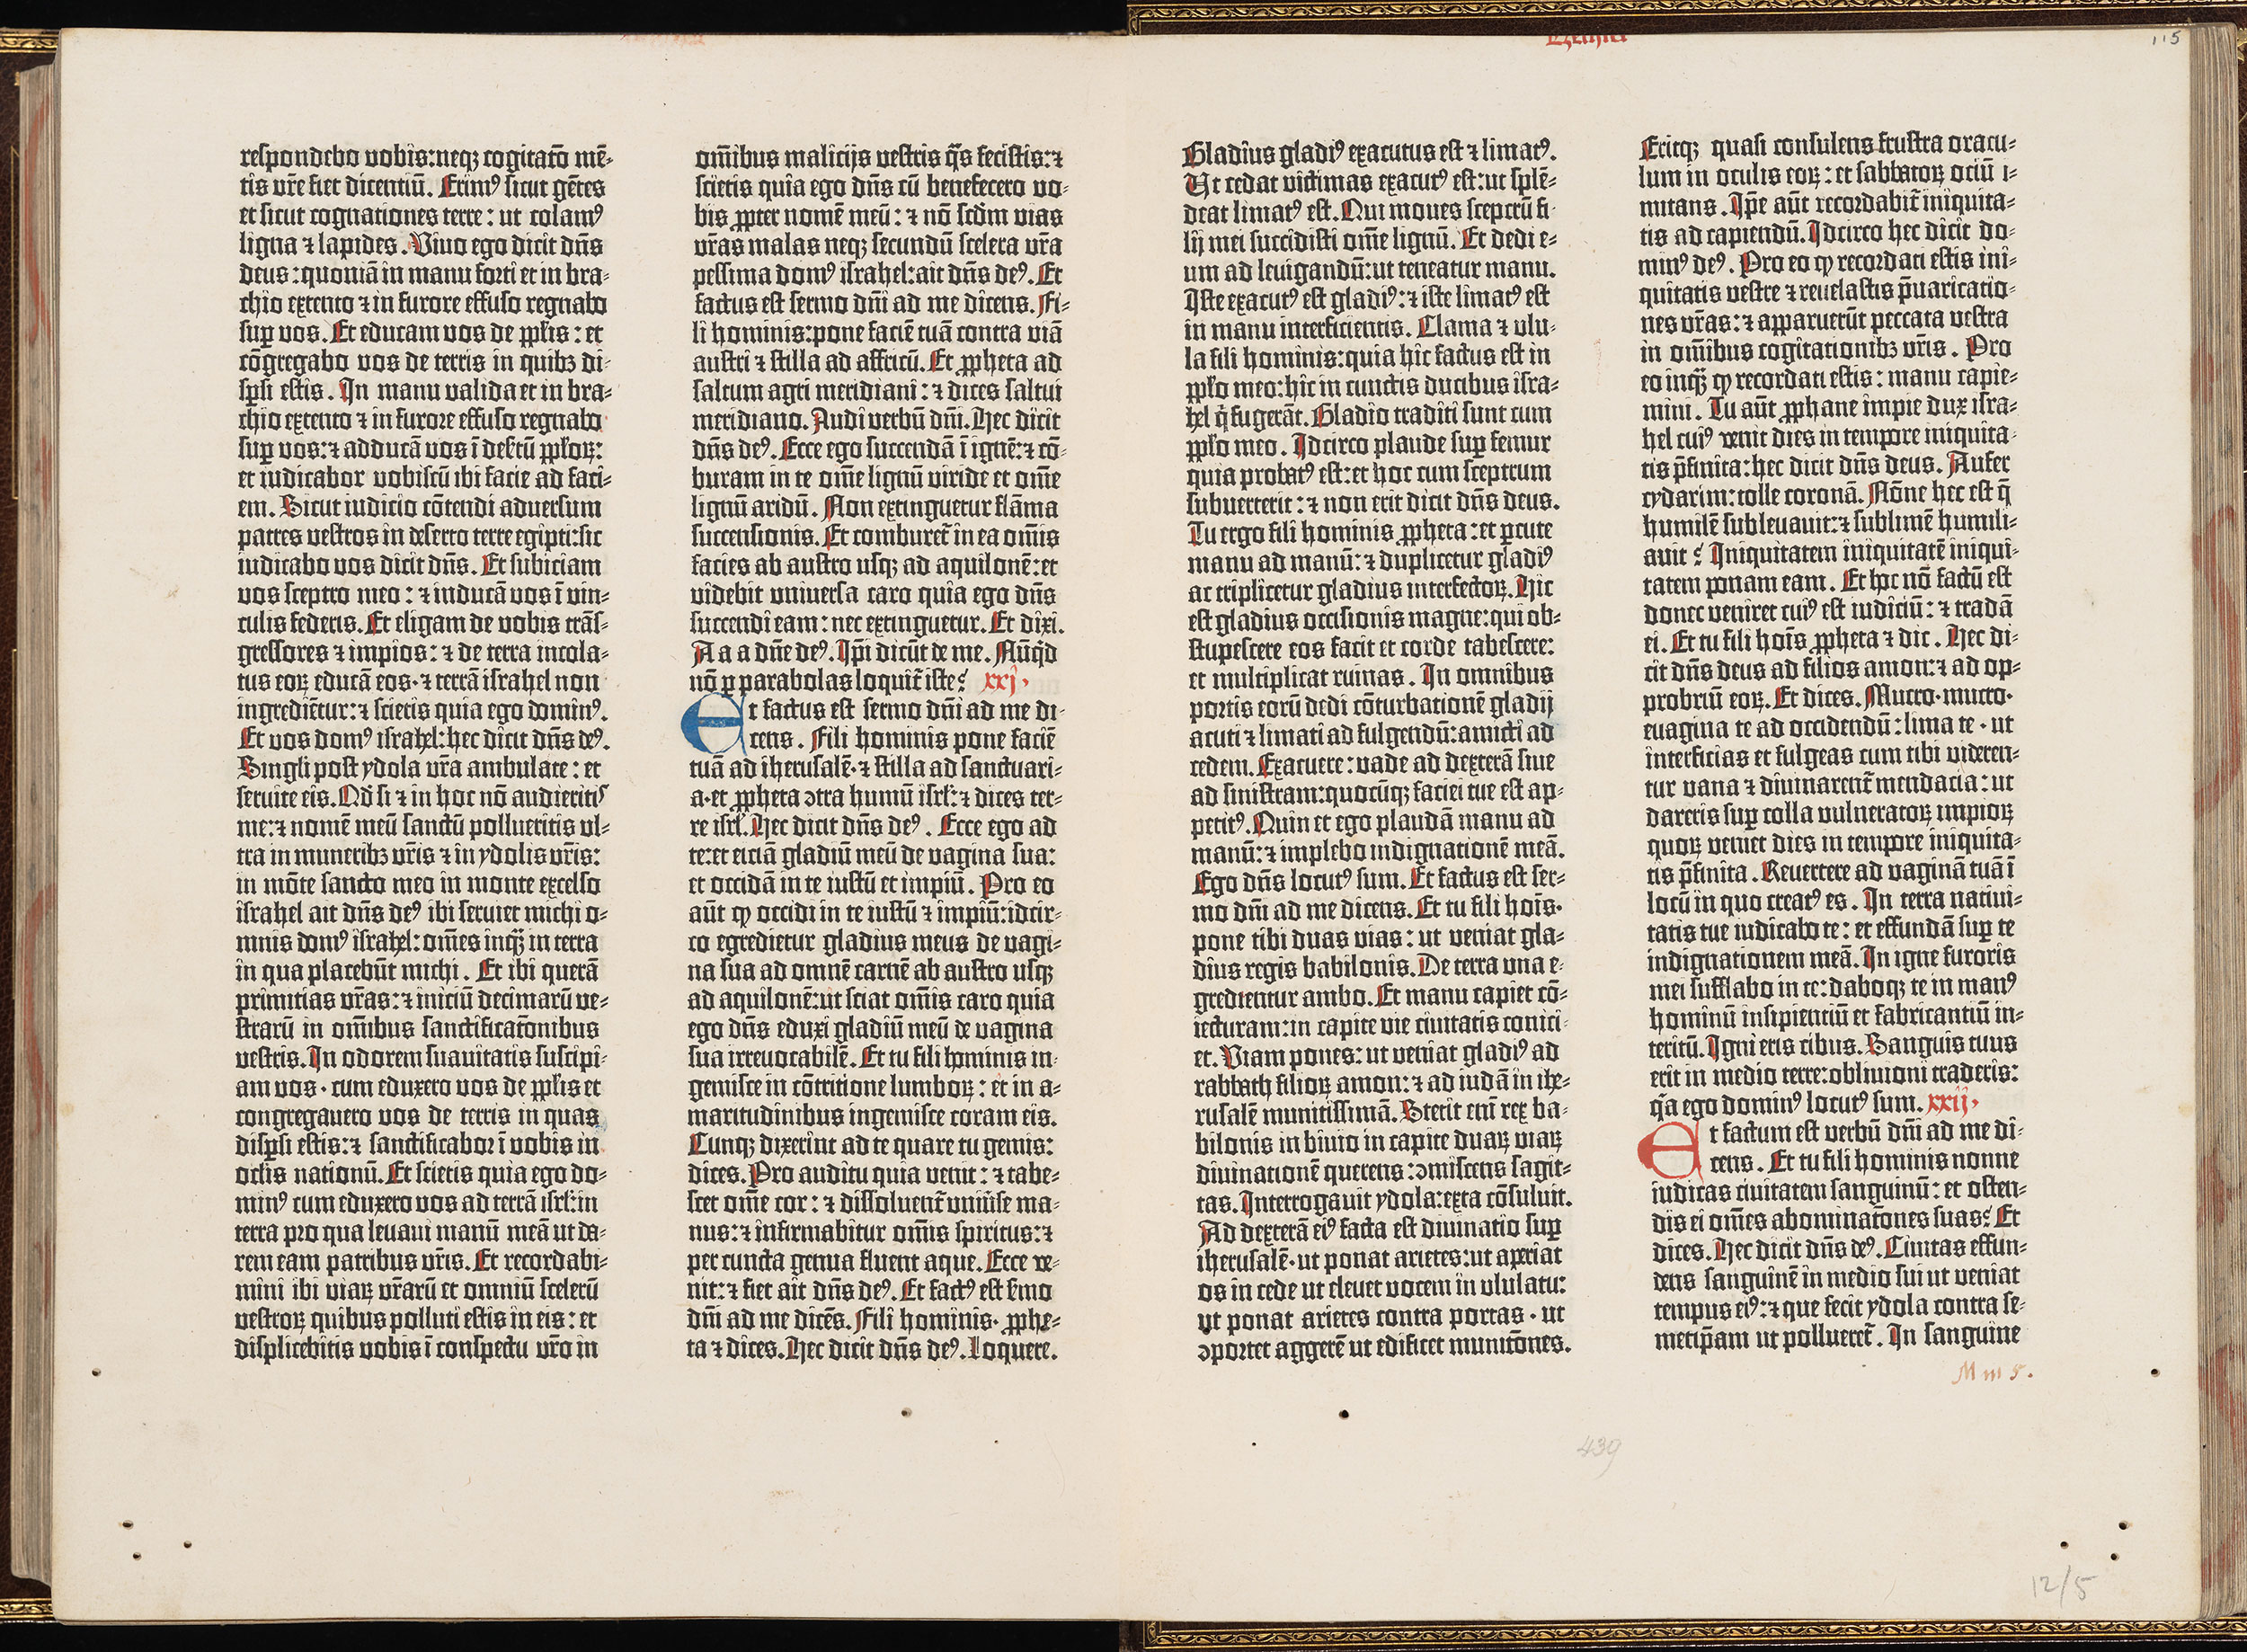 respondebo vobis:neqꝫ cogitatō mē-
tis vr̄e fiet dicentiū. Erimꝰ sicut gētes
et sicut cognationes terre: ut colamꝰ
ligna ⁊ lapides. Vivo ego dicit dn̄s
deus:quoniā in manu forti et in bra-
chio extento ⁊ in furore effuso regnabo
suꝑ vos. Et educam vos de pp̄lis: et
cōgregabo vos de terris in quibꝫ di-
spersi estis. In manu valida et in bra-
chio extento ⁊ in furore effuso regnabo
suꝑ vos:⁊ adducā vos ī desertū pp̄loꝝ:
et iudicabor vobiscū ibi facie ad faci-
em. Sicut iudicio cōtendi adversum
patres vestros in deserto terre egipti:sic
iudicabo vos dicit dn̄s. Et subiciam
vos sceptro meo: ⁊ inducā vos ī vin-
culis federis. Et eligam de vobis trās-
gressores ⁊ impios: ⁊ de terra incola-
tus eoꝝ educā eos· ⁊ terrā israhel non
ingrediētur: ⁊ scietis quia ego dominꝰ.
Et vos domꝰ israhel: hec dicit dn̄s deꝰ.
Singli post ydola vr̄a ambulate: et
servite eis. Qd̄ si ⁊ in hoc nō audieritis
me:⁊ nomē meū sanctū pollueritis ul-
tra in muneribꝫ vr̄is ⁊ in ydolis vr̄is:
in mōte sancto meo in monte excelso
israhel ait dn̄s deꝰ ibi serviet michi o-
mnis domꝰ israhel: om̄es inqꝫ̄ in terra
in qua placebūt michi. Et ibi querā
primitias vr̄as: ⁊ iniciū decimarū ve-
strarū in om̄ibus sanctificatōnibus
vestris. In odorem suavitatis suscipi-
am vos · cum eduxero vos de pp̄lis et
congregavero vos de terris in quas
disꝑsi estis: ⁊ sanctificabor ī vobis in
oclis nationū. Et scietis quia ego do-
minꝰ cum eduxero vos ad terrā isrl̄:in
terra pro qua levavi manū meā ut da-
rem eam patribus vr̄is. Et recordabi-
mini ibi viaꝝ vr̄arū et omniū scelerū
vestroꝝ quibus polluti estis in eis: et
displicebitis vobis ī conspectu vr̄o in
om̄ibus malicijs vestris q̄s fecistis:⁊
scietis quia ego dn̄s cū benefecero vo-
bis ꝓpter nomē meū: ⁊ nō scdm vias
vr̄as malas neqꝫ secundū scelera vr̄a
pessima domꝰ israhel: ait dn̄s deꝰ. Et
factus est sermo dn̄i ad me dicens. Fi-
li hominis:pone faciē tuā contra viā
austri ⁊ stilla ad affricū. Et ꝓpheta ad
saltum agri meridiani: ⁊ dices saltui
meridiano. Audi verbū dn̄i. Hec dicit
dn̄s deꝰ. Ecce ego succendā ī ignē:⁊ cō-
buram in te om̄e lignū viride et om̄e
lignū aridū. Non extinguetur flāma
succensionis. Et comburet̄ in ea om̄is
facies ab austro usqꝫ ad aquilonē: et
videbit universa caro quia ego dn̄s
succendi eam: nec extinguetur. Et dixi.
A a a dn̄e deꝰ. Ip̄i dicūt de me. Nūqd̄
nō ꝑ parabolas loquit̄ iste? xxj.
Et factus est sermo dn̄i ad me di-
cens. Fili hominis pone faciē
tuā ad iherusalē· ⁊ stilla ad sanctuari-
a·et ꝓpheta ↄtra humū isrl̄: ⁊ dices ter-
re isrl̄. Hec dicit dn̄s deꝰ. Ecce ego ad
te:et eiciā gladiū meū de vagina sua:
et occidā in te iustū et impiū. Pro eo
aūt ꝙ occidi in te iustū ⁊ impiū:idcir-
co egredietur gladius meus de vagi-
na sua ad omnē carnē ab austro usqꝫ
ad aquilonē:ut sciat om̄is caro quia
ego dn̄s eduxi gladiū meū de vagina
sua irrevocabilē. Et tu fili hominis in-
gemisce in cōtritione lumboꝝ: et in a-
maritudinibus ingemisce coram eis.
Cunqꝫ dixerint ad te quare tu gemis:
dices. Pro auditu quia venit: ⁊ tabe-
scet om̄e cor: ⁊ dissoluent̄ univ̄se ma-
nus: ⁊ infirmabitur om̄is spiritus: ⁊
per cuncta genua fluent aque. Ecce ve-
nit: ⁊ fiet ait dn̄s deꝰ. Et factꝰ est s̄mo
dn̄i ad me dicēs. Fili hominis· ꝓphe-
ta ⁊ dices. Hec dicit dn̄s deꝰ. Loquere.
Ezechiel
115
Gladius gladiꝰ exacutus est ⁊ limatꝰ.
Ut cedat victimas exacutꝰ est:ut splē-
deat limatꝰ est. Qui moves sceptrū fi-
lij mei succidisti om̄e lignū. Et dedi e-
um ad levigandū:ut teneatur manu.
Iste exacutꝰ est gladiꝰ: ⁊ iste limatꝰ est
in manu interficientis. Clama ⁊ ulu-
la fili hominis:quia hic factus est in
pp̄lo meo: hic in cunctis ducibus isra-
hel q̄ fugerāt. Gladio traditi sunt cum
pp̄lo meo. Idcirco plaude suꝑ femur
quia probatꝰ est: et hoc cum sceptrum
subverterit: ⁊ non erit dicit dn̄s deus.
Tu ergo fili hominis ꝓpheta: et ꝑcute
manu ad manū: ⁊ duplicetur gladiꝰ
ac triplicetur gladius interfectoꝝ. Hic
est gladius occisionis magne:qui ob-
stupescere eos facit et corde tabescere:
et multiplicat ruinas. In omnibus
portis eorū dedi cōturbationē gladij
acuti ⁊ limati ad fulgendū: amicti ad
cedem. Exacuere: vade ad dexterā sive
ad sinistram:quocūqꝫ faciei tue est ap-
petitꝰ. Quin et ego plaudā manu ad
manū: ⁊ implebo indignationē meā.
Ego dn̄s locutꝰ sum. Et factus est ser-
mo dn̄i ad me dicens. Et tu fili hoīs·
pone tibi duas vias: ut veniat gla-
dius regis babilonis. De terra una e-
gredientur ambo. Et manu capiet cō-
iecturam:in capite vie civitatis conici-
et. Viam pones: ut veniat gladiꝰ ad
rabbath filioꝝ amon: ⁊ ad iudā in ihe-
rusalē munitissimā. Stetit enī rex ba-
bilonis in bivio in capite duaꝝ viaꝝ
divinationē querens: ↄmiscens sagit-
tas. Interrogavit ydola:exta cōsuluit.
Ad dexterā eiꝰ facta est divinatio suꝑ
iherusalē· ut ponat arietes:ut aperiat
os in cede ut elevet vocem in ululatu:
ut ponat arietes contra portas · ut
ↄportet aggerē ut edificet munitōnes.
Eritqꝫ quasi consulens frustra oracu-
lum in oculis eoꝝ: et sabbatoꝝ ociū i-
mitans. Ip̄e aūt recordabit̄ iniquita-
tis ad capiendū. Idcirco hec dicit do-
minꝰ deꝰ. Pro eo ꝙ recordati estis ini-
quitatis vestre ⁊ revelastis p̄varicatio-
nes vr̄as: ⁊ apparuerūt peccata vestra
in om̄ibus cogitationibꝫ vr̄is. Pro
eo inqꝫ̄ ꝙ recordati estis: manu capie-
mini. Tu aūt ꝓphane impie dux isra-
hel cuiꝰ venit dies in tempore iniquita-
tis p̄finita: hec dicit dn̄s deus. Aufer
cydarim:tolle coronā. Nōne hec est q̄
humilē sublevavit:⁊ sublimē humili-
avit? Iniquitatem iniquitatē iniqui-
tatem ponam eam. Et hoc nō factū est
donec veniret cuiꝰ est iudiciū: ⁊ tradā
ei. Et tu fili hoīs ꝓpheta ⁊ dic. Hec di-
cit dn̄s deus ad filios amon: ⁊ ad op-
probriū eoꝝ. Et dices. Mucro·mucro·
evagina te ad occidendū: lima te · ut
interficias et fulgeas cum tibi videren-
tur vana ⁊ divinarent̄ mendacia: ut
dareris suꝑ colla vulneratoꝝ impioꝝ
quoꝝ veniet dies in tempore iniquita-
tis p̄finita. Revertere ad vaginā tuā ī
locū in quo creatꝰ es. In terra nativi-
tatis tue iudicabo te: et effundā suꝑ te
indignationem meā. In igne furoris
mei sufflabo in te: daboqꝫ te in manꝰ
hominū insipientiū et fabricantiū in-
teritū. Igni eris cibus. Sanguis tuus
erit in medio terre:oblivioni traderis:
qa ego dominꝰ locutꝰ sum. xxij.
Et factum est verbū dn̄i ad me di-
cens. Et tu fili hominis nonne
iudicas civitatem sanguinū: et osten-
dis ei om̄es abominatōnes suas? Et
dices. Hec dicit dn̄s deꝰ. Civitas effun-
dens sanguinē in medio sui ut veniat
tempus eiꝰ: ⁊ que fecit ydola contra se-
metip̄am ut pollueret̄. In sanguine
M m 5.
439
12/5